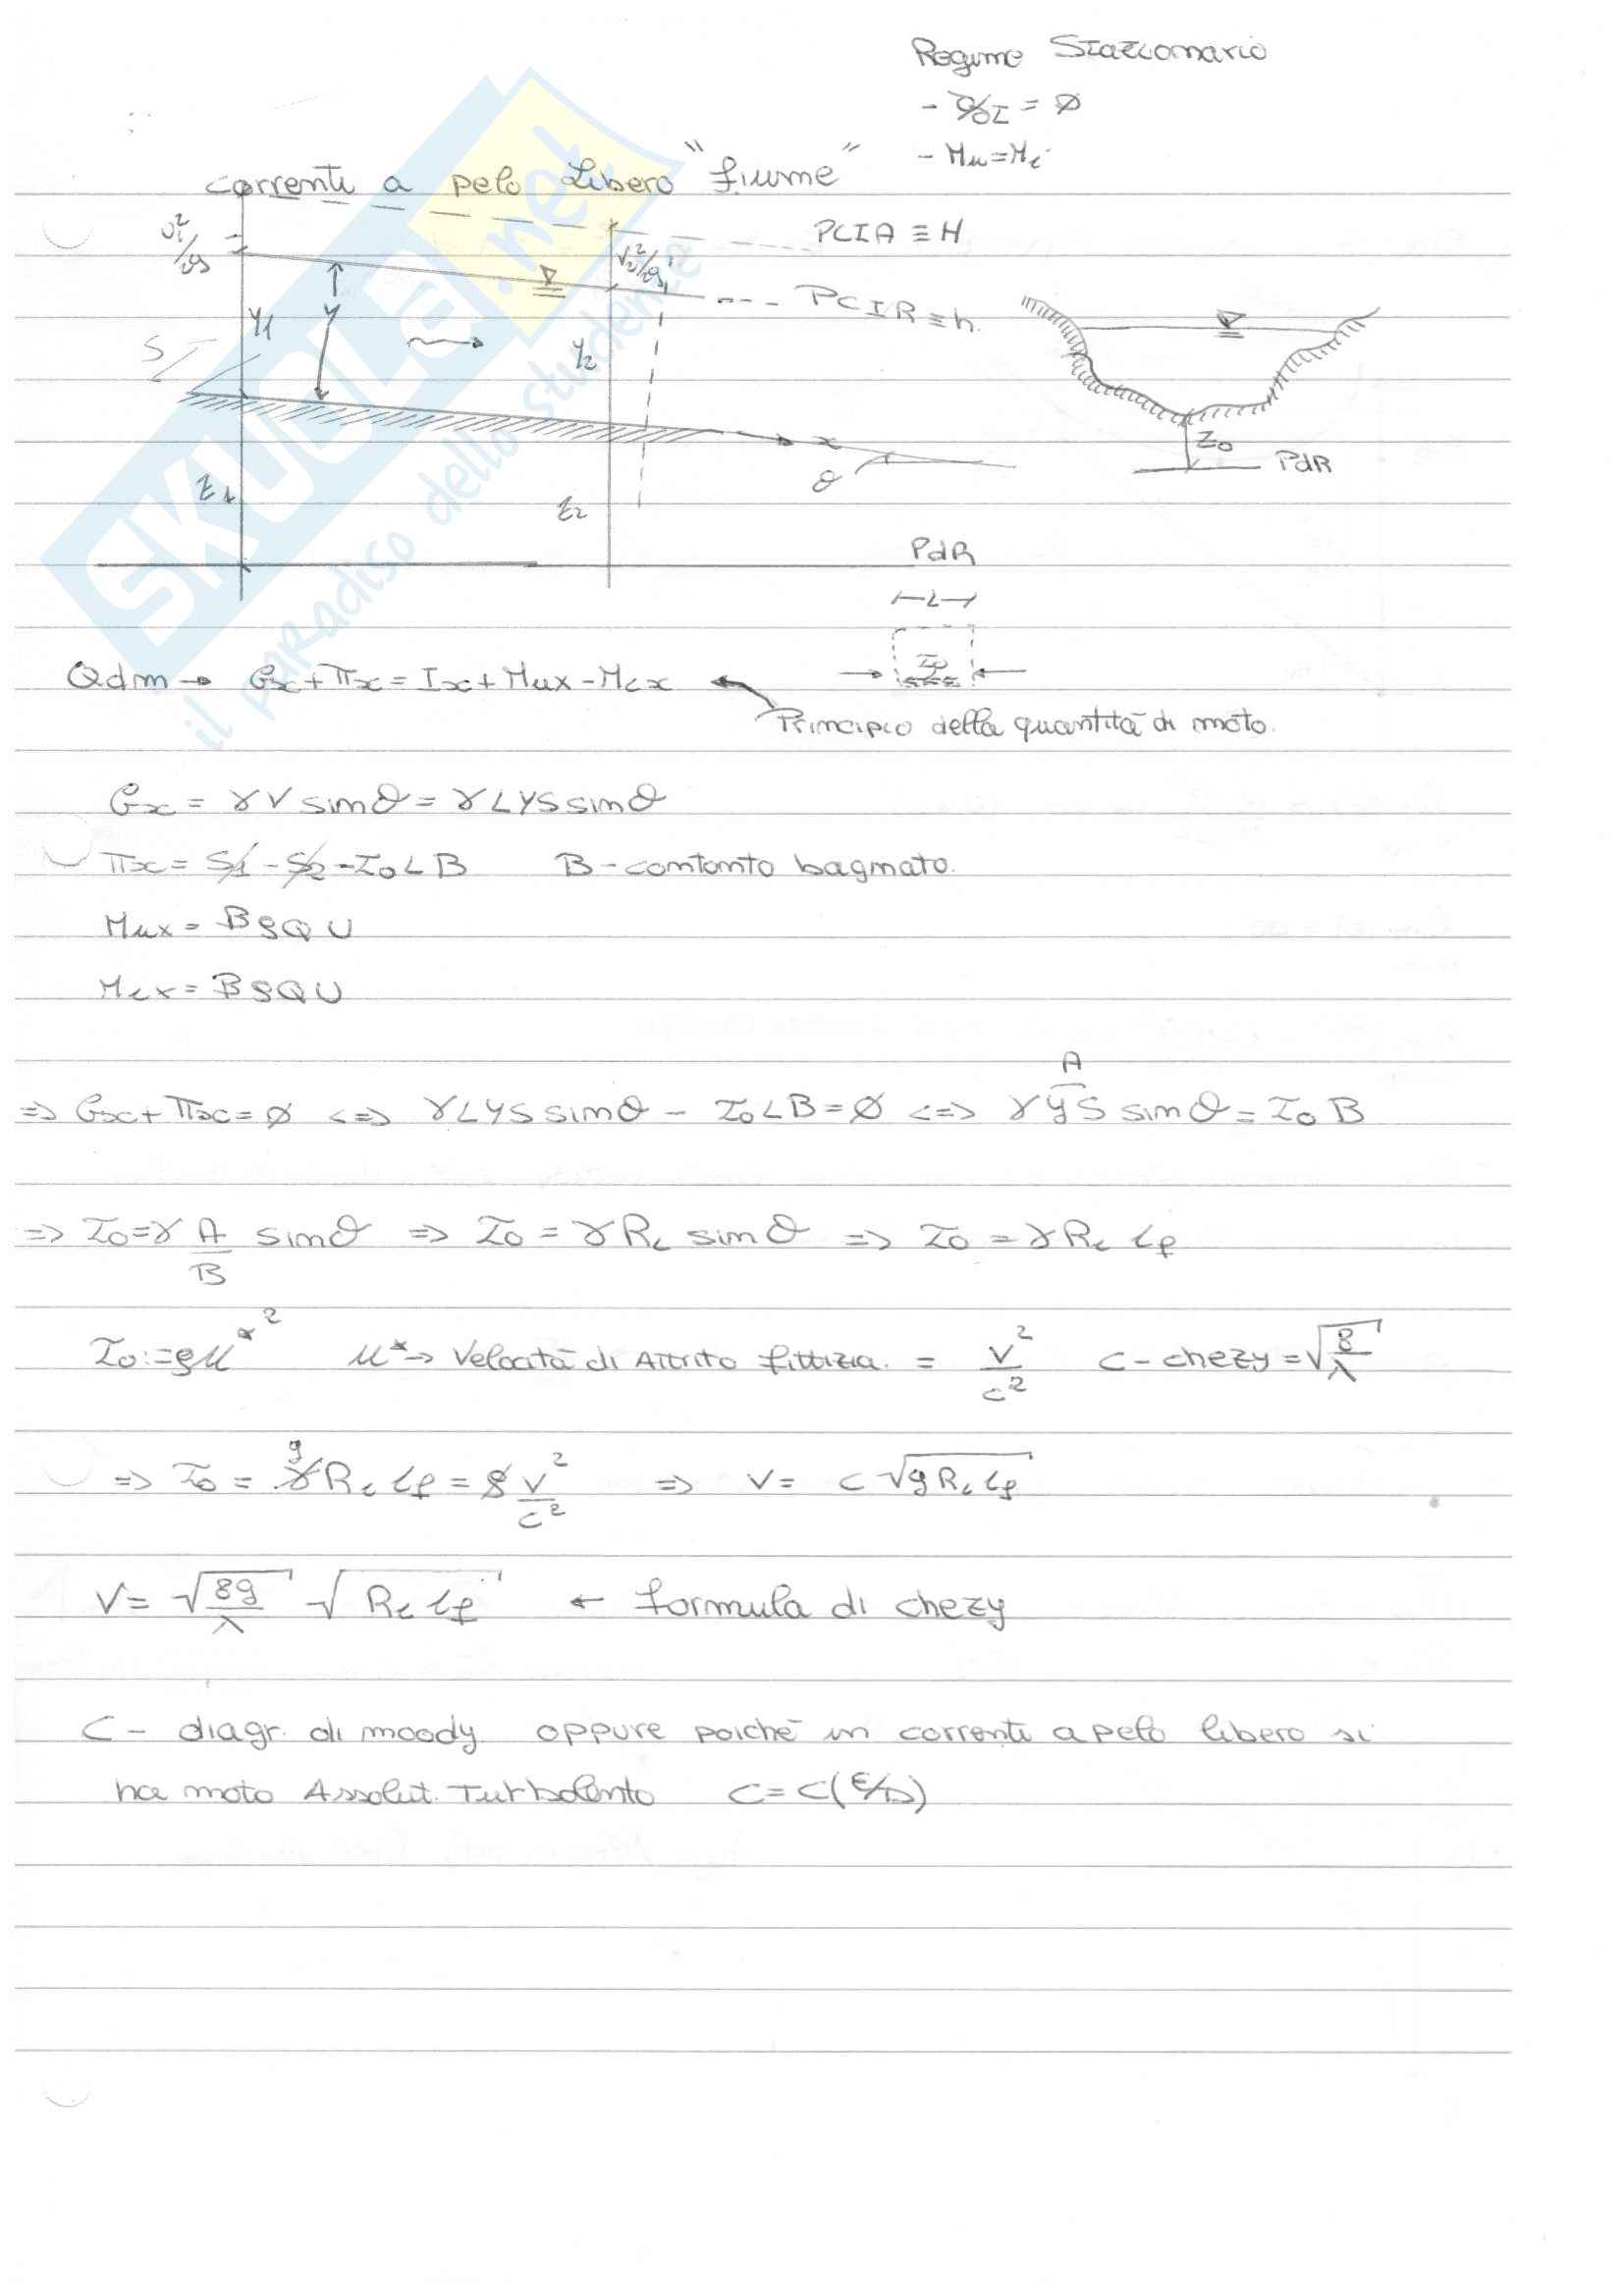 Regime Stazionario
- ∂/∂t = ∅
- Mu = Me
correnti a pelo libero "fiume"
U₁²/2g
V₂²/2g
PCIA ≡ H
PCIR ≡ h
y₁
y
y₂
S
x
θ
z₁
z₂
Z₀
PdR
PdR
L
τ₀
Qdm → Gx + πx = Ix + Mux - Mex
Principio della quantità di moto.
Gx = γV sinθ = γLYS sinθ
πx = S₁ - S₂ - τ₀LB B - contorno bagnato.
Mux = βρQU
Mex = βρQU
A
⇒ Gx + πx = ∅ <=> γLYS sinθ - τ₀LB = ∅ <=> γyS sinθ = τ₀B
⇒ τ₀ = γ A/B sinθ ⇒ τ₀ = γRi sinθ ⇒ τ₀ = γRi if
τ₀ := ρu*² u* → Velocità di Attrito fittizia = V²/c² C - chezy = √8/λ
⇒ τ₀ = γ g Ri if = ρ V²/c² ⇒ V = C√gRi if
V = √8g/λ √Ri if ← formula di chezy
C - diagr. di moody oppure poichè in correnti a pelo libero si
ha moto Assolut. Turbolento C = C(ε/D)
SKUOLA.net
il paradiso dello studente